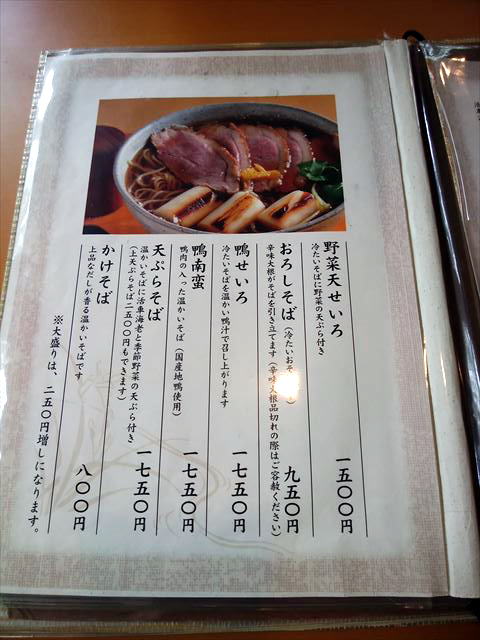 野菜天せいろ
冷たいそばに野菜の天ぷら付き
一五〇〇円
おろしそば
(冷たいおそ
辛味大根がそばを引き立てます(辛味大根品切れの際はご容赦ください)
九五〇円
鴨せいろ
冷たいそばを温かい鴨汁で召し上がります
一七五〇円
鴨南蛮
鴨肉の入った温かいそば(国産地鴨使用)
一七五〇円
天ぷらそば
温かいそばに活車海老と季節野菜の天ぷら付き
(上天ぷらそば二五〇〇円もできます)
一七五〇円
かけそば
上品なだしが香る温かいそばです
八〇〇円
※大盛りは、二五〇円増しになります。